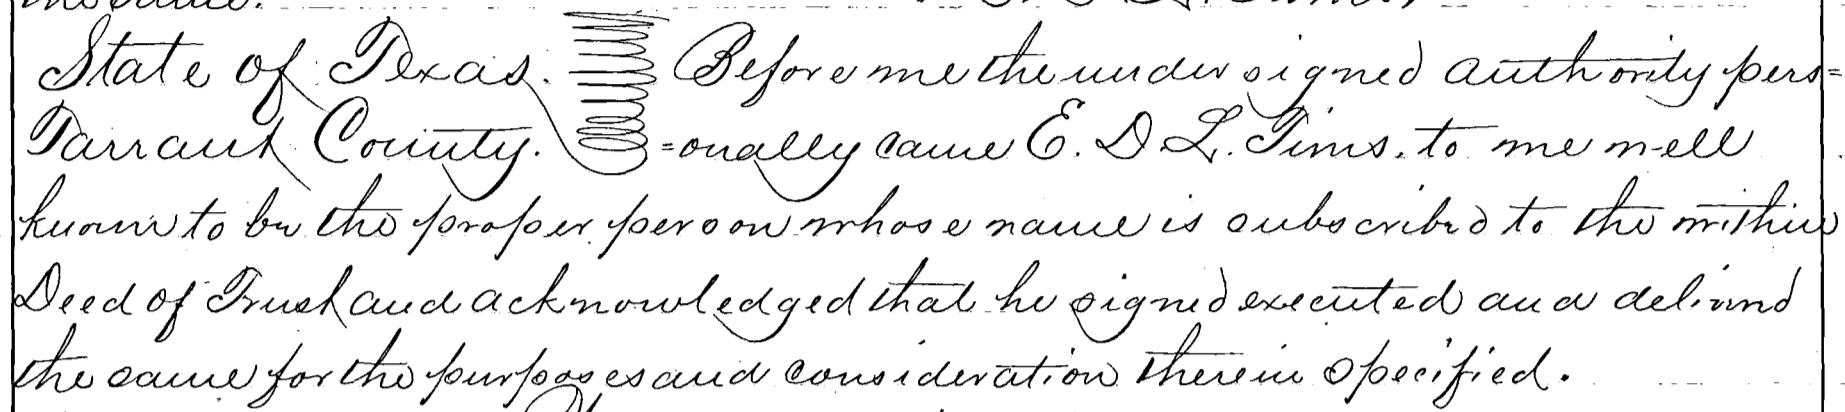 State of Texas. Before me the undersigned authority pers=
Tarrant County. =onally came E. D. L. Tims. to me well
known to be the proper person whose name is subscribed to the within
Deed of Trust and acknowledged that he signed executed and delivered
the same for the purposes and consideration therein specified.